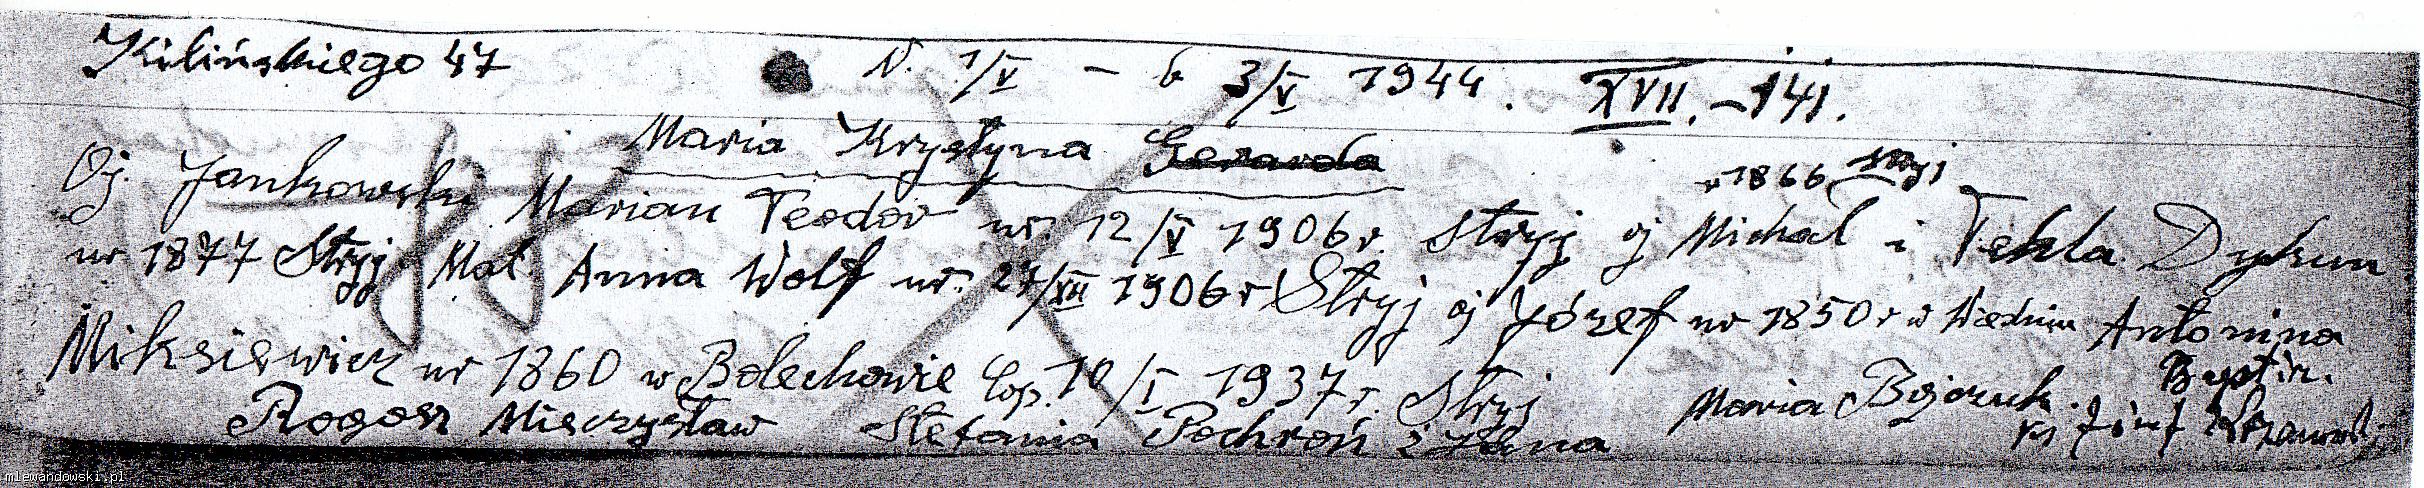 Kilińskiego 47 N. 1/V - b 3/V 1944. XVII. - 141.
Maria Krystyna Gerarda
w 1866 Stryj
Oj. Jankowski Marian Teodor ur. 12/V 1906 r. Stryj oj Michał i Tekla Dykun
ur 1877 Stryj Mat. Anna Wolf ur. 27/VII 1906 r Stryj oj Józef ur 1850 r w Wiedniu Antonina
Miksiewicz ur 1860 w Bolechowie 10/I 1937 r. Stryj Maria
Rogosz Mieczysław Stefania Pochroń żona ks Józef
mlewandowski.pl